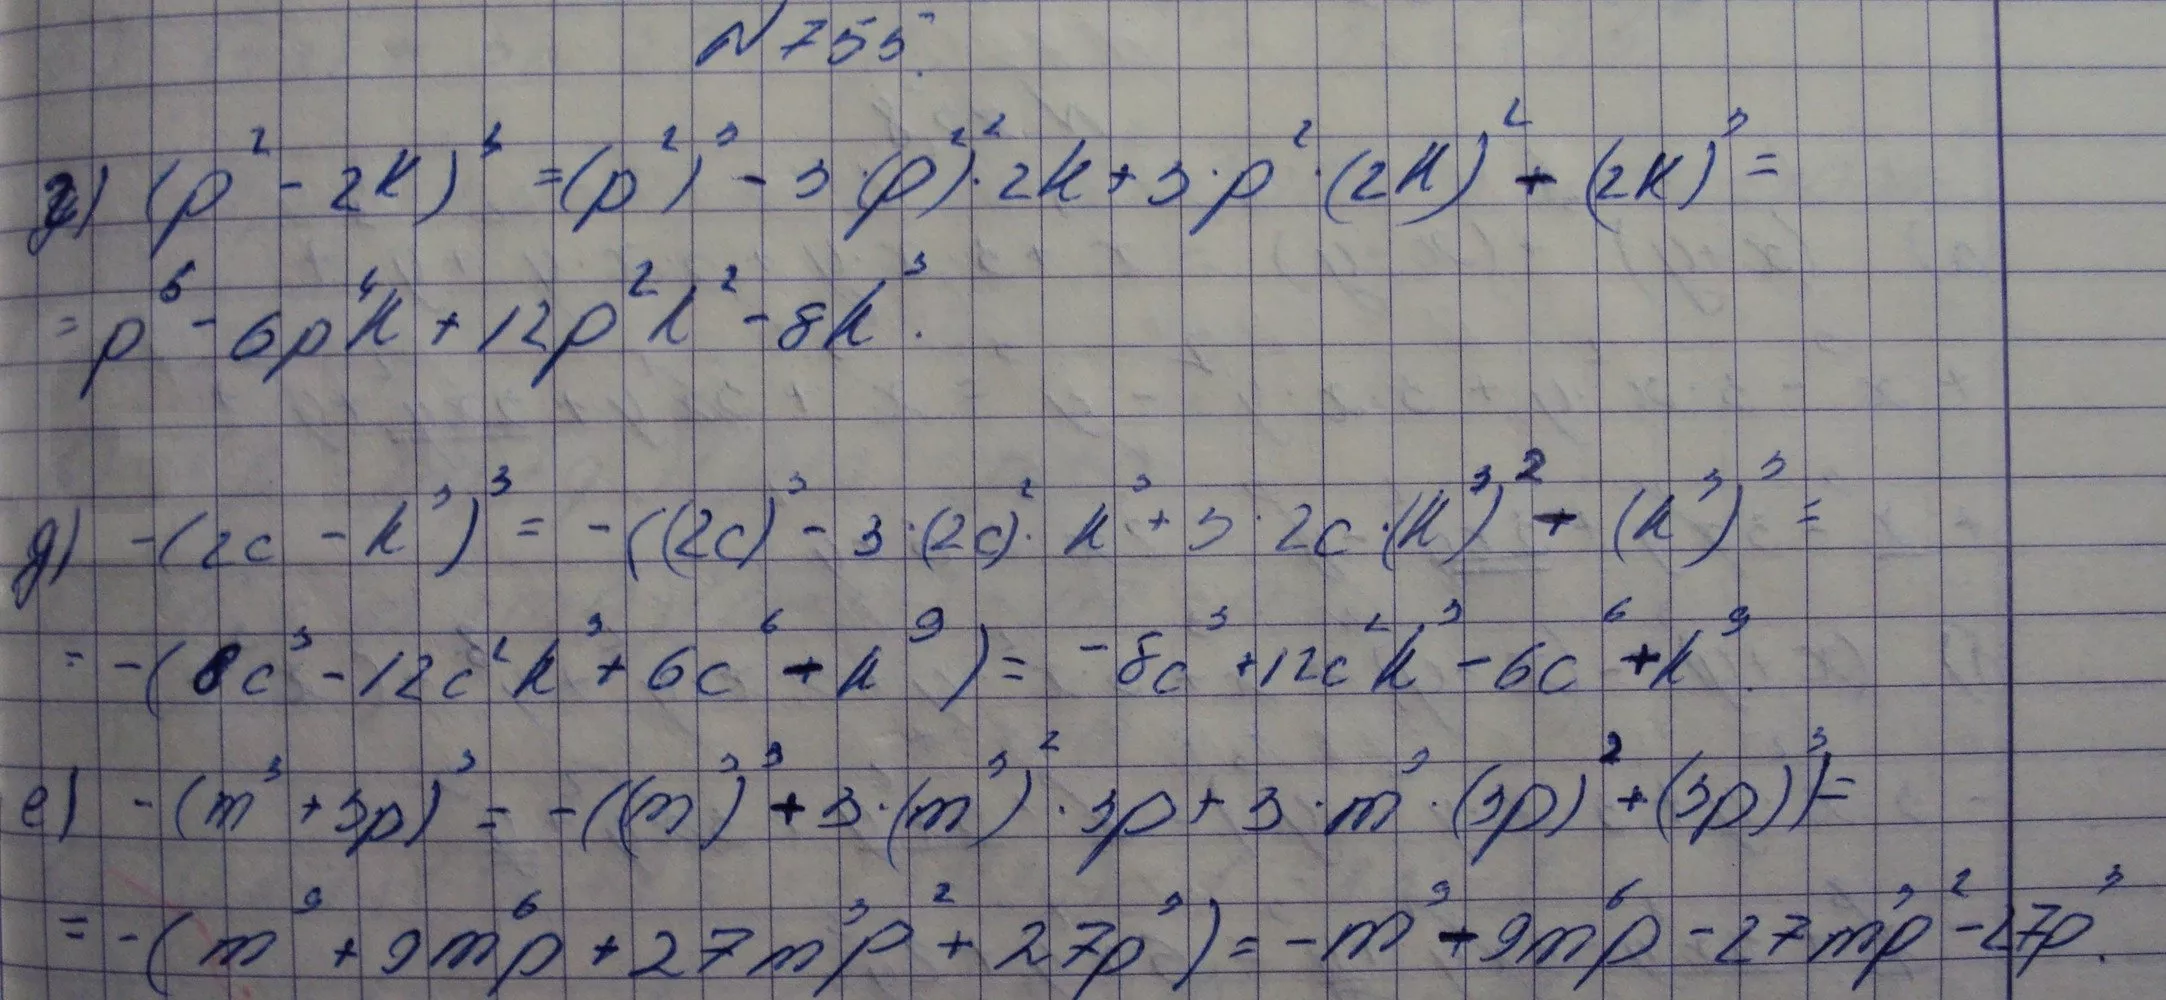 №755.
г) (p² - 2k)³ = (p²)³ - 3·(p²)²·2k + 3·p²·(2k)² - (2k)³ =
= p⁶ - 6p⁴k + 12p²k² - 8k³.
д) -(2c - k³)³ = -((2c)³ - 3·(2c)²·k³ + 3·2c·(k³)² - (k³)³ =
= -(8c³ - 12c²k³ + 6c⁶ - k⁹) = -8c³ + 12c²k³ - 6c⁶ + k⁹.
е) -(m³ + 3p)³ = -((m³)³ + 3·(m³)²·3p + 3·m³·(3p)² + (3p)³) =
= -(m⁹ + 9m⁶p + 27m³p² + 27p³) = -m⁹ - 9m⁶p - 27m³p² - 27p³.